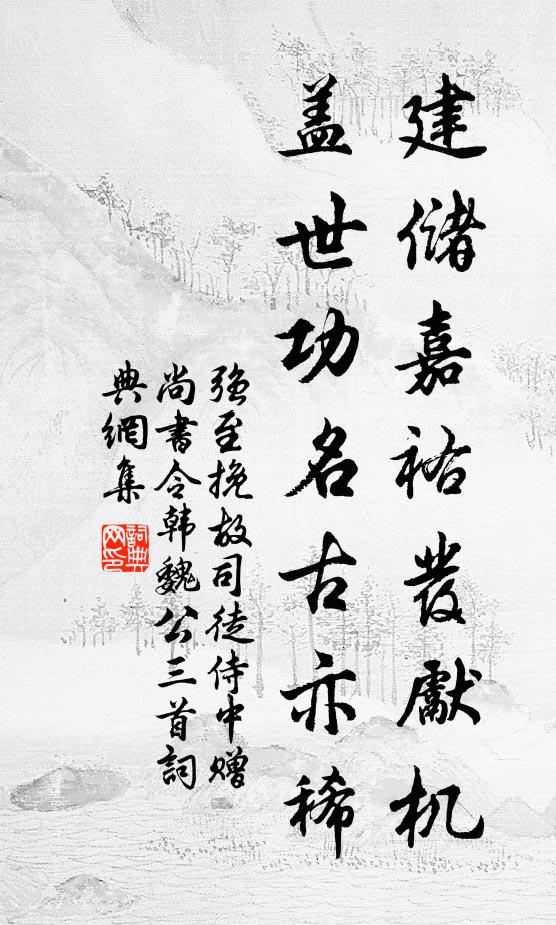 建儲嘉祐發獻机
盖世功名古亦稀
强至挽故司徒侍中赠
尚書令韩魏公三首詞
典網集
詞典
网印